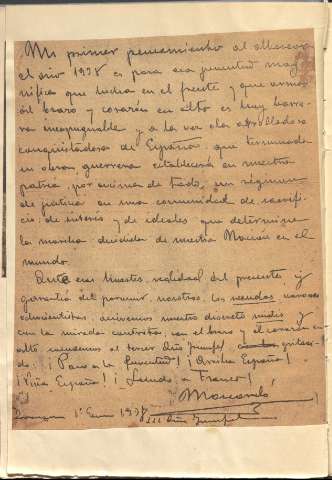 Mi primer pensamiento al alborear
el año 1938 es para esa juventud mag-
nífica que lucha en el frente y que arma
al brazo y corazón en alto es hoy barre-
ra inexpugnable y a la vez ola arrolladora
conquistadora de España, que terminada
su obra guerrera establecerá en nuestra
patria, por encima de todo, un régimen
de justicia en una comunidad de sacrifi-
cio, de interés y de ideales que determine
la marcha decidida de nuestra Nación en el
mundo.
Ante esas huestes, realidad del presente y
garantía del porvenir, nosotros, los
nuestro discreto
con la mirada contrita, con el brazo y el corazón en
alto, el tercer Año Triunfal gritan-
do: ¡Paso a la Juventud! ¡Arriba España!
¡Viva España! ¡Saludo a Franco!
Moscardó
Zaragoza 1º Enero 1938
III Año Triunfal